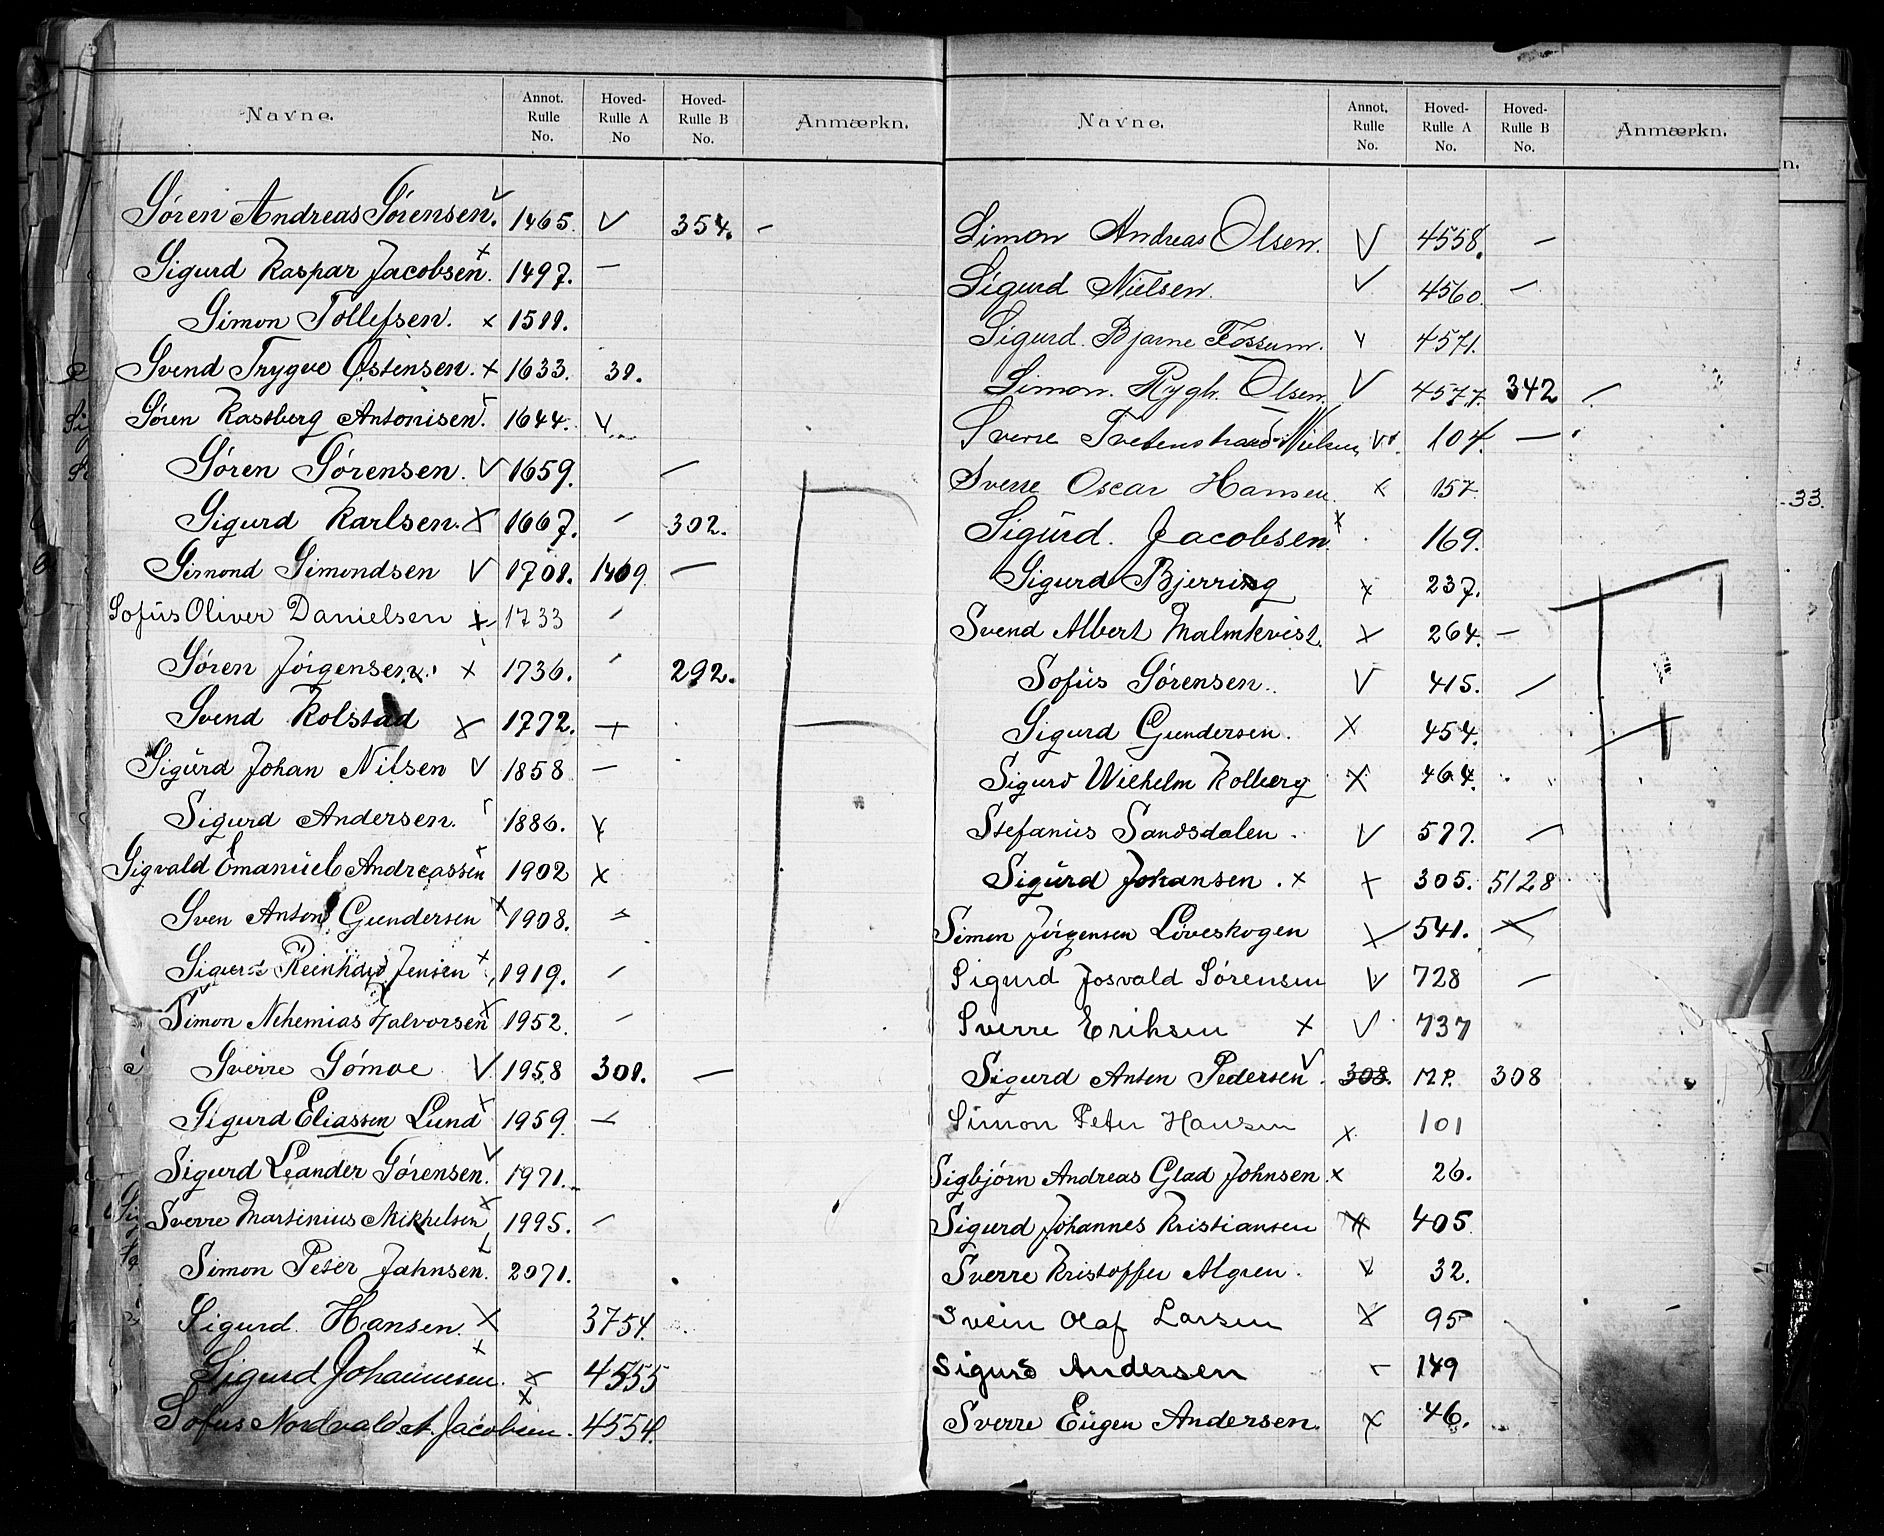 Navne. Annot. Rulle No. Hoved- Rulle A No Hoved- Rulle B No. Anmærkn.
Søren Andreas Sørensen. 1465. 354.
Sigurd Kaspar Jacobsen. 1497.
Simon Tollefsen. 1511.
Svend Trygve Østensen. 1633. 31.
Søren Kastberg Antonisen. 1644.
Søren Sørensen. 1659.
Sigurd Karlsen. 1667. 302.
Simond Simondsen 1701. 1409
Sofus Oliver Danielsen 1733
Søren Jörgensen. 1736. 292.
Svend Kolstad 1772.
Sigurd Johan Nilsen 1858
Sigurd Andersen. 1886.
Sigvald Emanuel Andreassen 1902
Sven Anton Gundersen 1908.
Sigurd Reinhard Jensen 1919.
Simon Nehemias Halvorsen 1952.
Sverre Tömoe 1958 301.
Sigurd Eliassen Lund 1959.
Sigurd Leander Sörensen. 1971.
Sverre Martinius Mikkelsen 1995.
Simon Peter Jahnsen. 2071.
Sigurd. Hansen. 3754.
Sigurd Johannesen. 4555
Sofus Nordvald A. Jacobsen. 4554.
Navne. Annot. Rulle No. Hoved- Rulle A No. Hoved- Rulle B No. Anmærkn.
Simon Andreas Olsen. 4558.
Sigurd Nielsen. 4560.
Sigurd. Bjarne Fossum. 4571.
Simon. Rygh. Olsen. 4577. 342
Sverre Tvetenstrand Nielsen 104.
Sverre Oscar Hansen 157
Sigurd. Jacobsen. 169.
Sigurd Bjerring 237.
Svend Albert Malmkvist. 264.
Sofus Sørensen. 415.
Sigurd Gundersen. 454.
Sigurd Wilhelm Kolberg 464.
Stefanus Sandsdalen. 577.
Sigurd Johansen. 305. 5128
Simon Jörgensen Löveskogen 541.
Sigurd Josvald Sørensen 728
Sverre Eriksen 737
Sigurd Anton Pedersen. 308. M.P. 308
Simon Peter Hansen 101
Sigbjörn Andreas Glad Johnsen. 26.
Sigurd Johannes Kristiansen 405
Sverre Kristoffer Algren. 32.
Svein Olaf Larsen 95
Sigurd Andersen 149
Sverre Eugen Andersen. 46.
n.
33.